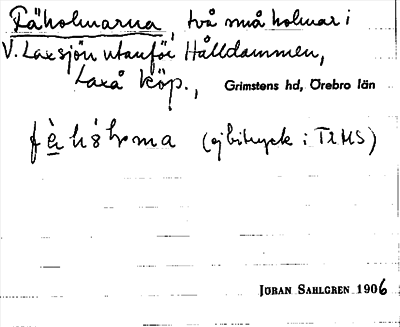 Fäholmarna, två små holmar i
V. Laxsjön utanför Hålldammen,
Laxå köp., Grimstens hd, Örebro län
(ej bitryck i TLMS)
JÖRAN SAHLGREN 1906